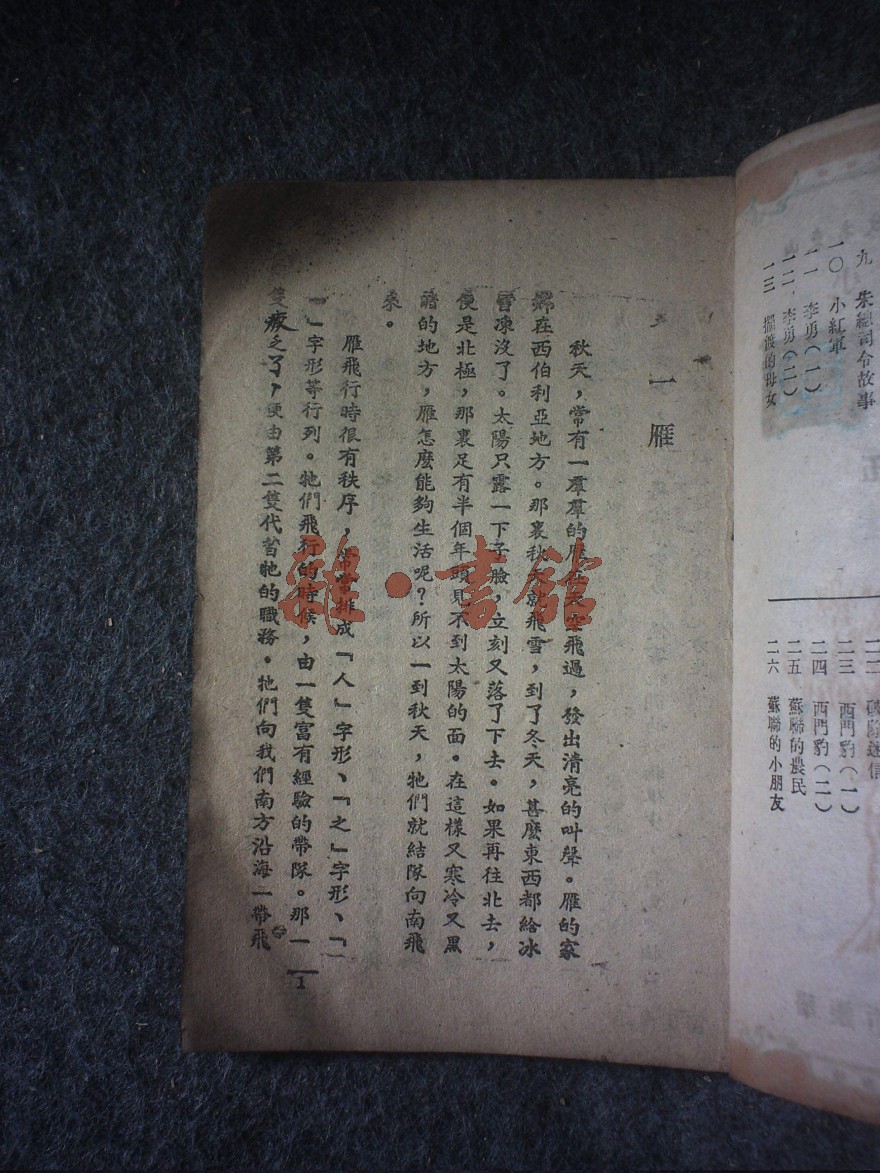 九 朱總司令故事
一〇 小紅軍
一一 李勇(一)
一二 李勇(二)
一三 擺渡的母女
二三 西門豹(一)
二四 西門豹(二)
二五 蘇聯的農民
二六 蘇聯的小朋友
一 雁
秋天,常有一羣羣的雁從天空飛過,發出清亮的叫聲。雁的家
鄉在西伯利亞地方。那裏秋天就飛雪,到了冬天,甚麼東西都給冰
雪凍沒了。太陽只露一下子臉,立刻又落了下去。如果再往北去,
便是北極,那裏足有半個年頭見不到太陽的面。在這樣又寒冷又黑
暗的地方,雁怎麼能夠生活呢?所以一到秋天,牠們就結隊向南飛
來。
雁飛行時很有秩序,常常排成「人」字形、「之」字形、「一
」字形等行列。牠們飛行的時候,由一隻富有經驗的帶隊。那一
隻疲乏了,便由第二隻代替牠的職務。牠們向我們南方沿海一帶飛
1
雜·書館